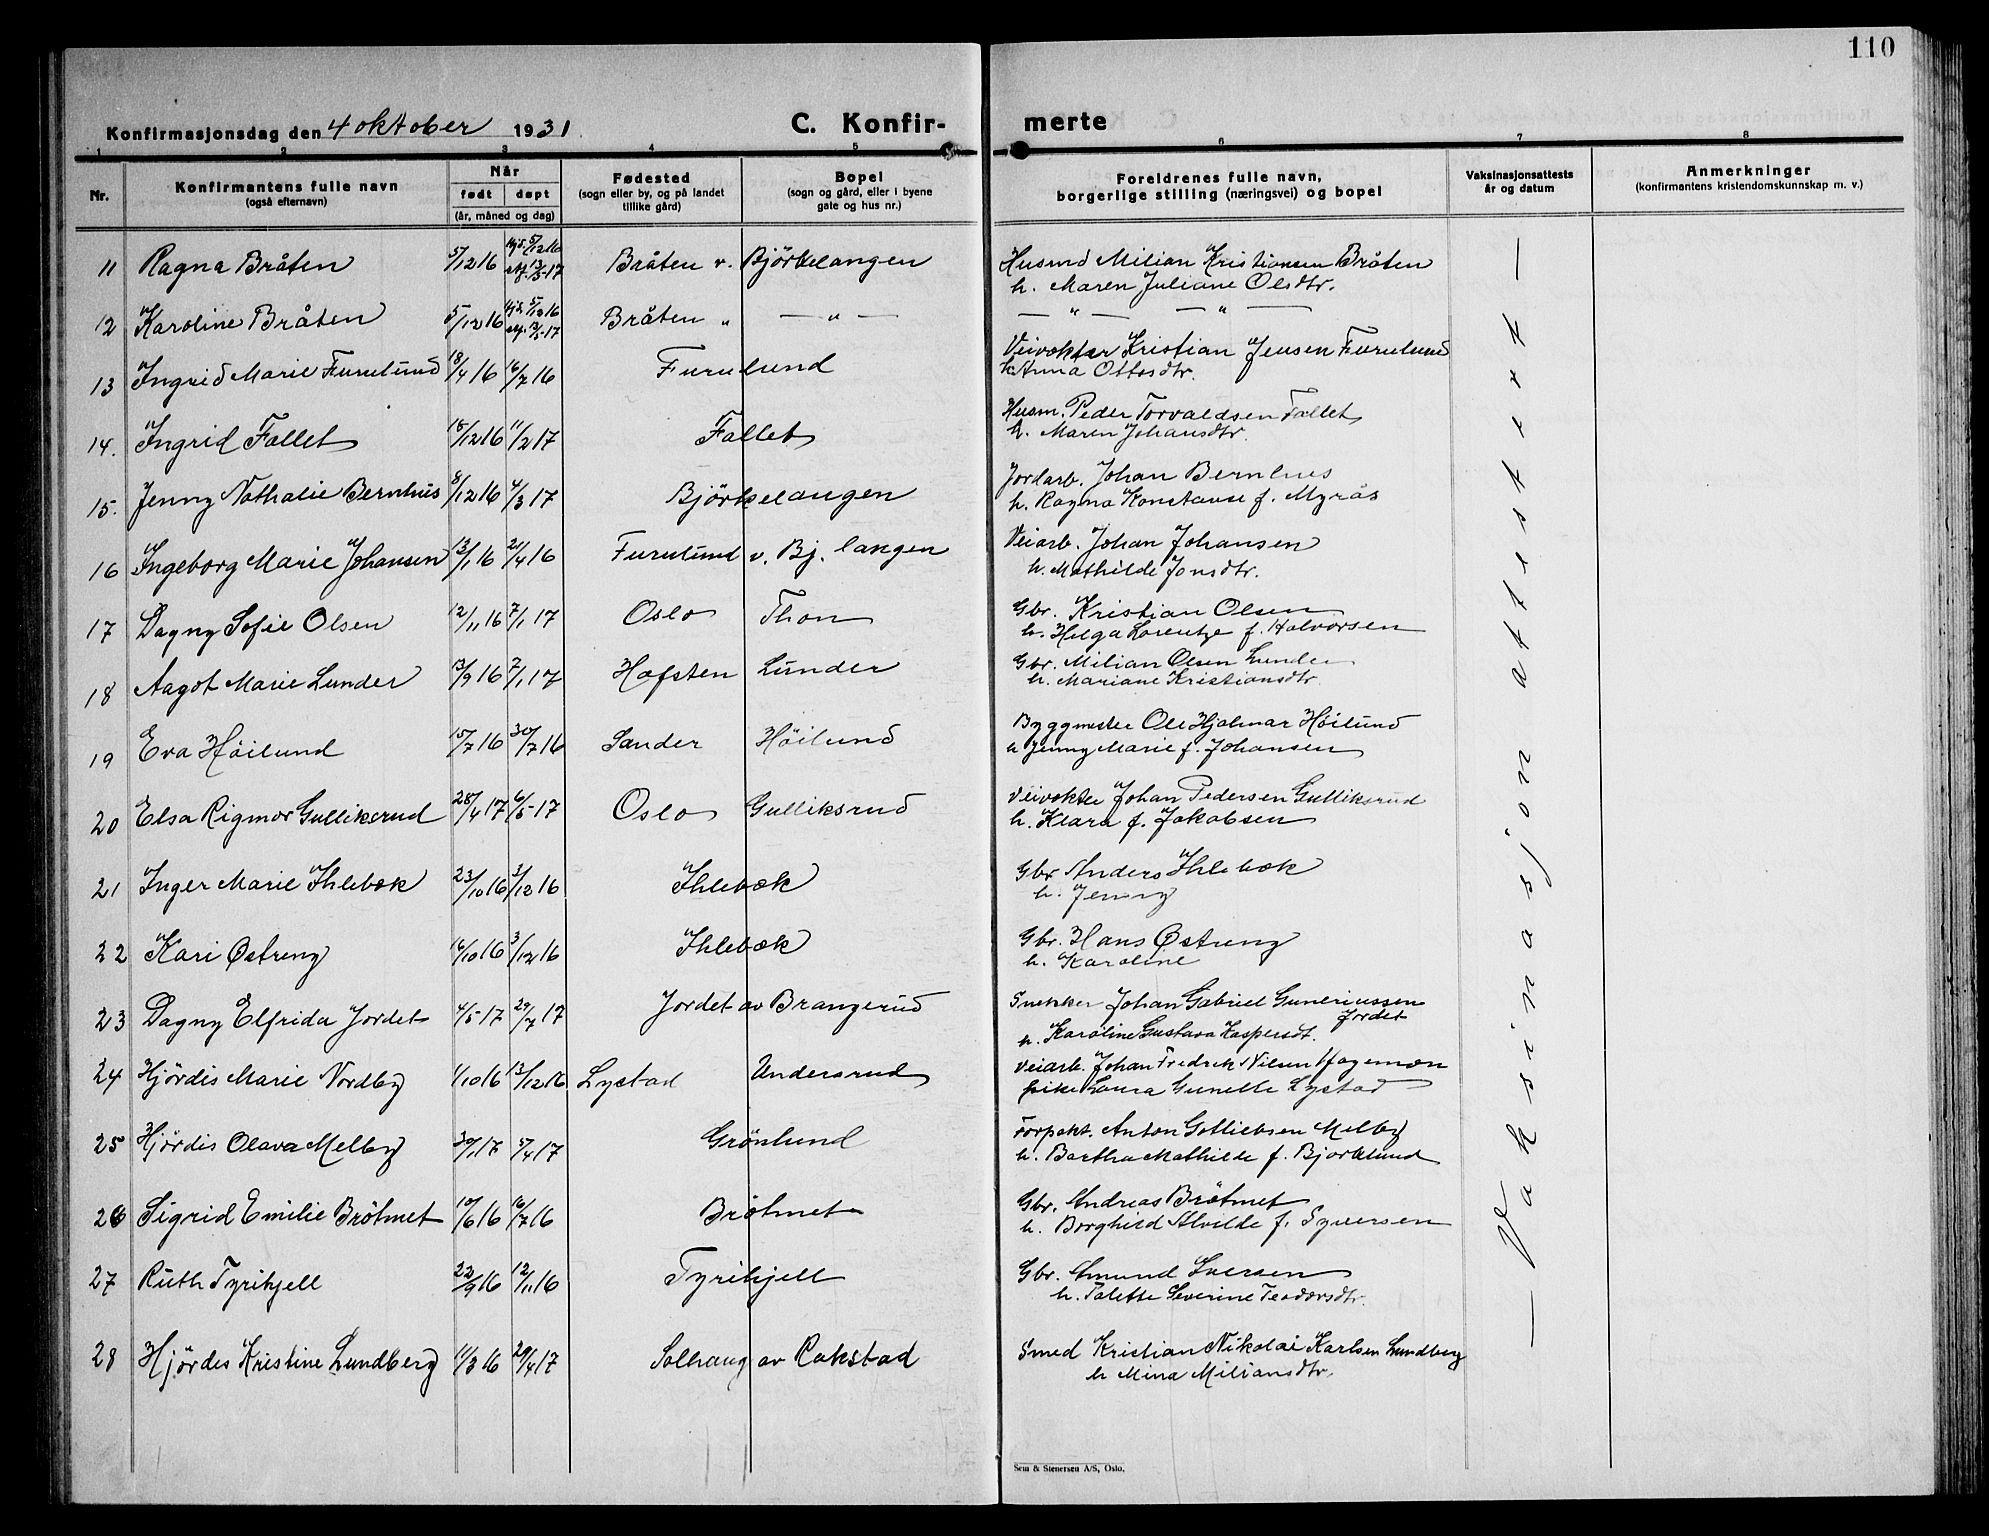 110
Konfirmasjonsdag den 4 oktober 1931
C. Konfir-
merte
1 2 3 4 5 6 7 8
Nr.
Konfirmantens fulle navn
(også efternavn)
Når
født døpt
(år, måned og dag)
Fødested
(sogn eller by, og på landet
tillike gård)
Bopel
(sogn og gård, eller i byene
gate og hus nr.)
Foreldrenes fulle navn,
borgerlige stilling (næringsvei) og bopel
Vaksinasjonsattests
år og datum
Anmerkninger
(konfirmantens kristendomskunnskap m. v.)
11 Ragna Bråten 5/12 16 hjd. 5/12 16 Bråten v. Björkelangen Husmd Milian Kristiansen Bråten
13/5-17 h. Maren Juliane Olsdtr.
12 Karoline Bråten 5/12 16 hjd. 5/12 16 Bråten " — " — — " — — " —
13/5-17
13 Ingrid Marie Furulund 18/4 16 16/7 16 Furulund Veivokter Kristian Jensen Furulund
h. Anna Ottosdtr.
14. Ingrid Fallet 15/12 16 11/2 17 Fallet Husm. Peder Torvaldsen Fallet
h. Maren Johansdtr.
15. Jenny Nathalie Bernhus 8/12 16 4/3 17 Björkelangen Jordarb. Johan Bernhus
h. Ragna Konstanse f. Myrås
16 Ingeborg Marie Johansen 13/1 16 21/4 16 Furulund v. Bj. langen Veiarb. Johan Johansen
h. Mathilde Jonsdtr.
17 Dagny Sofie Olsen 12/11 16 7/1 17 Oslo Thon Gbr. Kristian Olsen
h. Helga Lorentze f. Halvorsen
18 Aagot Marie Lunder 13/9 16 7/1 17 Hofsten Lunder Gbr. Milian Olsen Lunder
h. Mariane Kristiansdtr.
19 Eva Höilund 15/7 16 30/7 16 Sander Höilund Byggmester Ole Hjalmar Höilund
h Jenny Marie f. Johansen
20 Elsa Rigmor Gulliksrud 28/4 17 6/5-17 Oslo Gulliksrud Veivokter Johan Pedersen Gulliksrud
h. Klara f. Jakobsen
21 Inger Marie Ihlebæk 23/10 16 3/12 16 Ihlebæk Gbr Anders Ihlebæk
h. Jenny
22 Kari Østreng 16/10 16 3/12 16 Ihlebæk Gbr. Hans Østreng
h. Karoline
23 Dagny Elfrida Jordet 4/5-17 29/7 17 Jordet av Brangerud Snekker Johan Gabriel Guneriussen
Jordet
h. Karoline Gustava Kaspersdt.
24 Hjördis Marie Nordby 1/10 16 13/12 16 Lystad Undersrud Veiarb. Johan Fredrik Nilsen Hagemoen
pike Laura Gunelle Lystad
25 Hjördis Olava Melby 30/1 17 5/4 17 Grönlund Forpakt. Anton Gotliebsen Melby
h. Bertha Mathilde f. Bjorklund
26 Sigrid Emilie Brötmet 10/6 16 16/7 16 Brötmet Gbr. Andreas Brötmet
h. Borghild Alvilde f. Syversen
27 Ruth Tyrihjell 22/9 16 12/11 16 Tyrihjell Gbr. Amund Iversen
h. Talette Severine Teodorsdtr.
28 Hjördis Kristine Lundberg 11/3 16 29/4 17 Solhaug av Rakstad Smed Kristian Nikolai Karlsen Lundberg
h Mina Miliansdtr.
— Vaksinasjon attestert —
Sem & Stenersen A/S, Oslo.